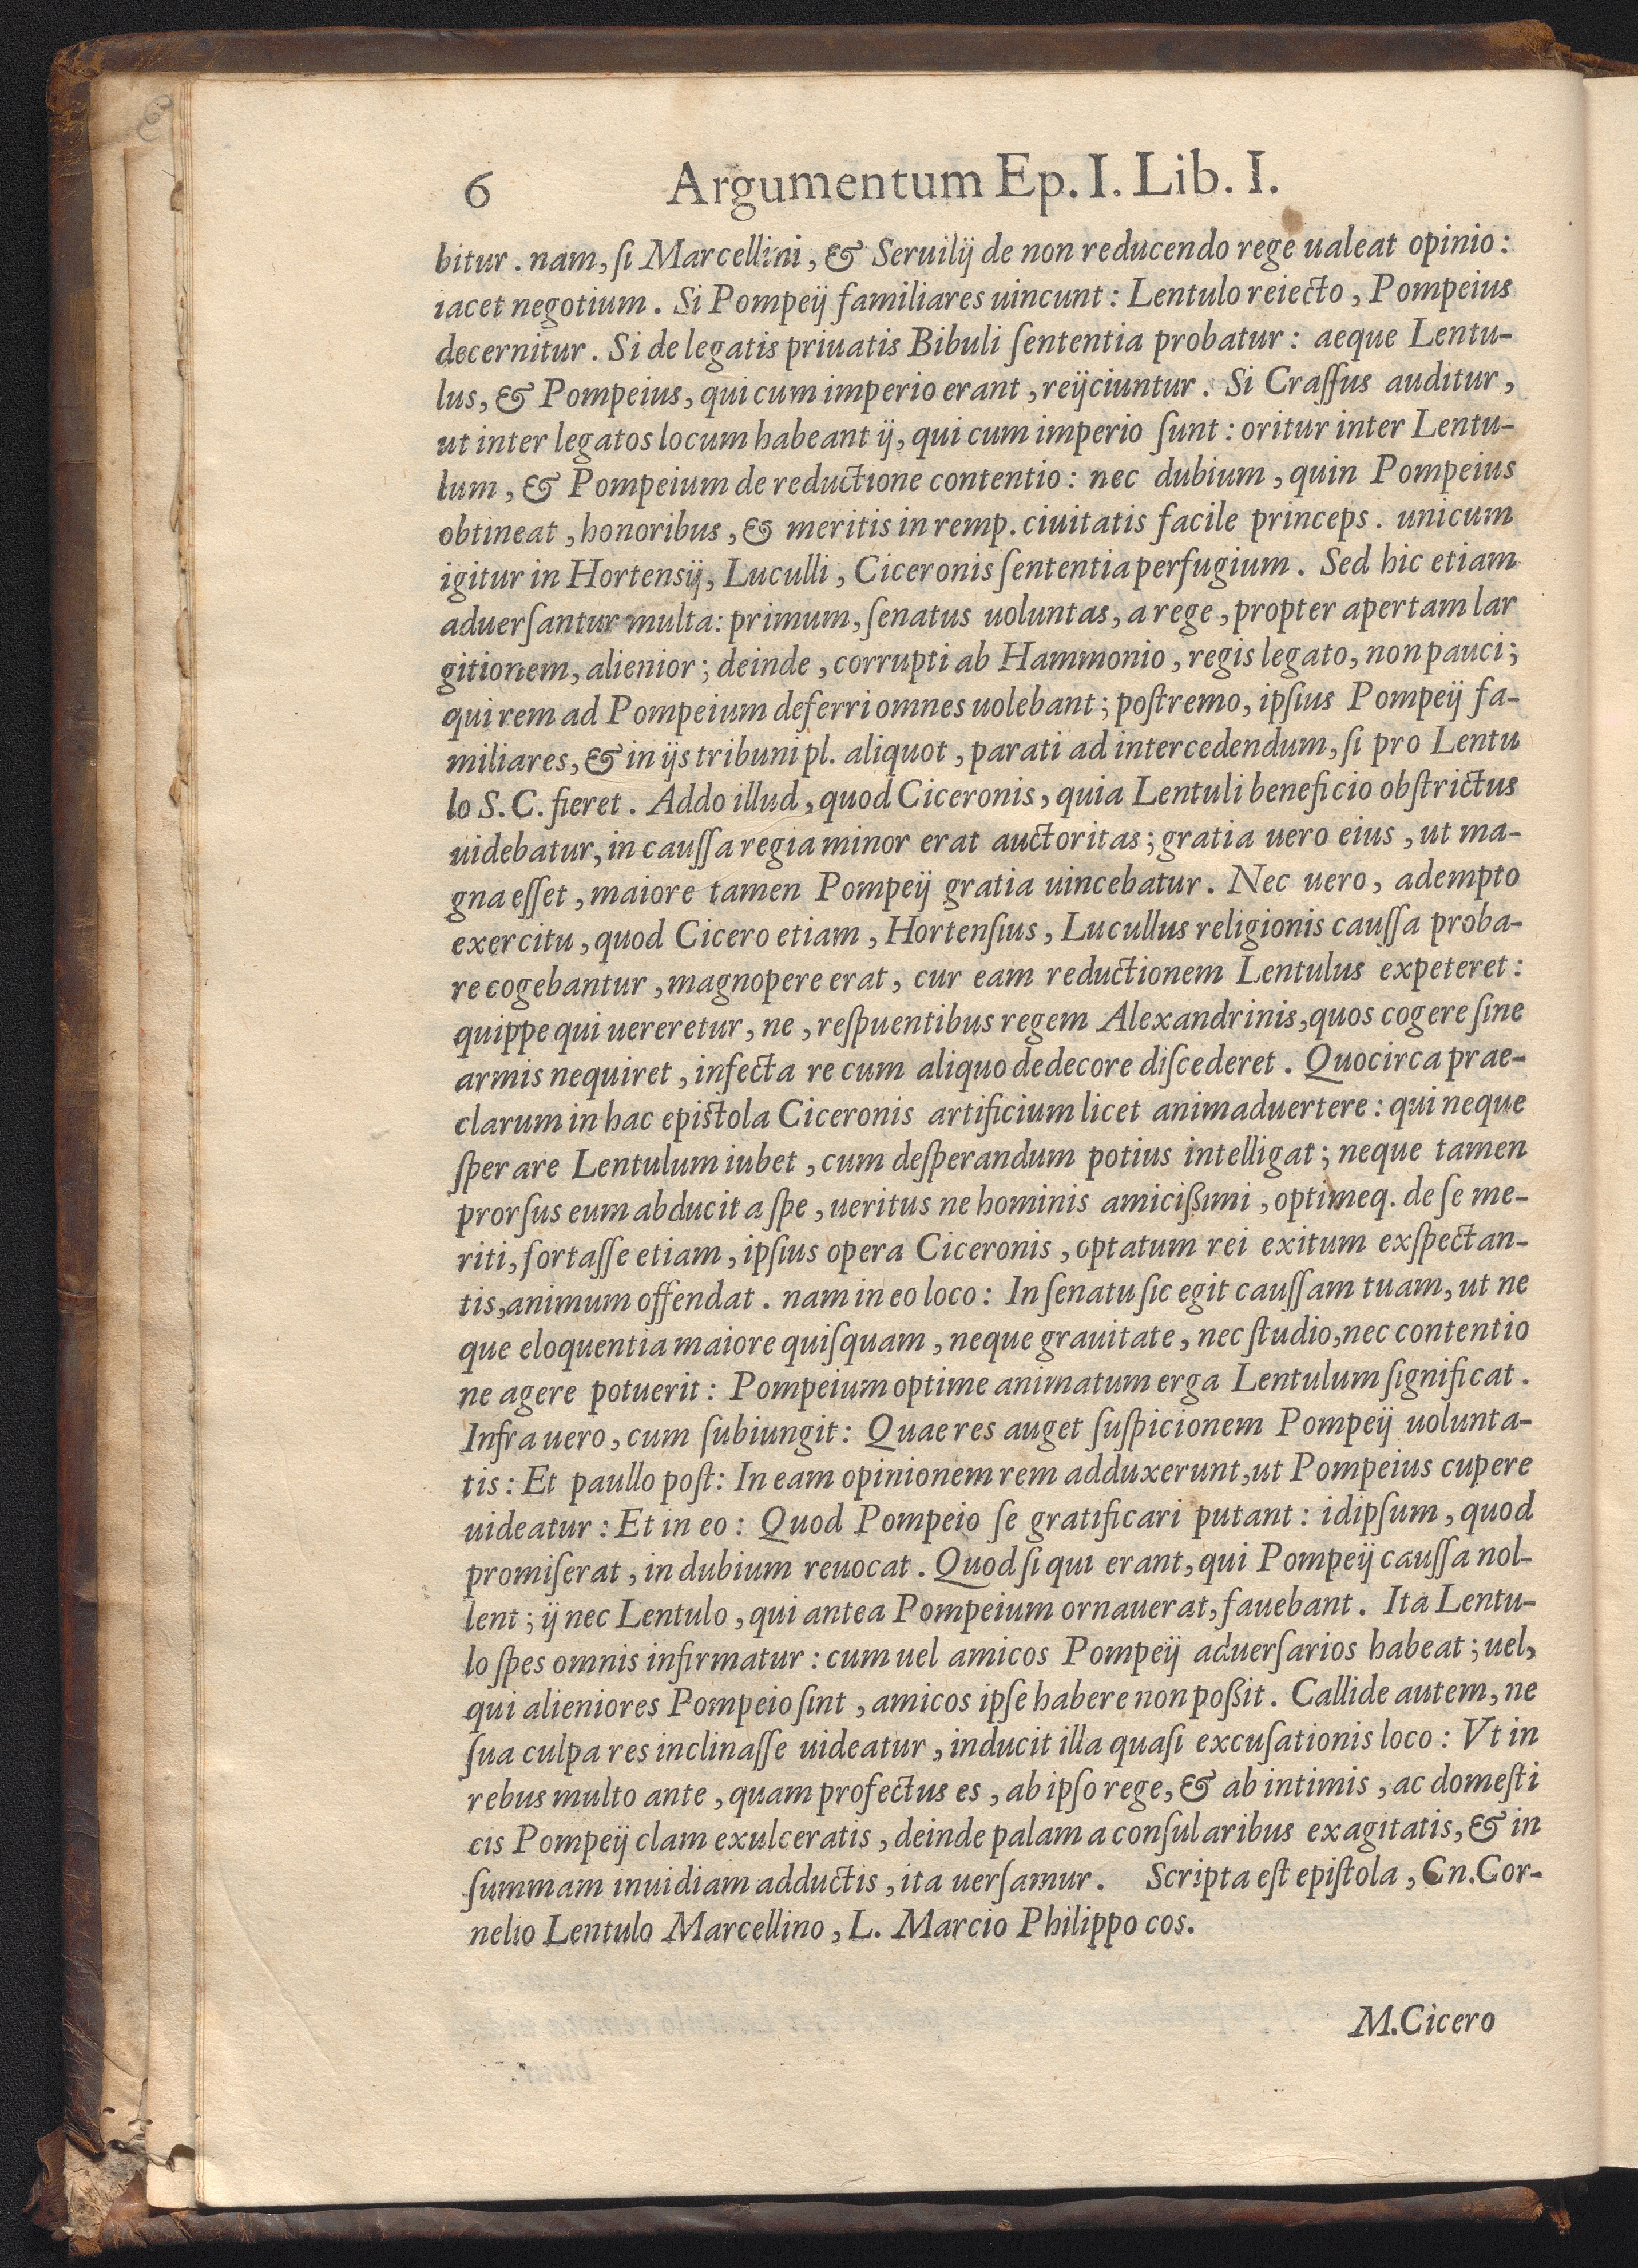 6 Argumentum Ep. I. Lib. I.
bitur. nam, ſi Marcellini, & Seruilij de non reducendo rege ualeat opinio:
iacet negotium. Si Pompeij familiares uincunt: Lentulo reiecto, Pompeius
decernitur. Si de legatis priuatis Bibuli ſententia probatur: aeque Lentu-
lus, & Pompeius, qui cum imperio erant, reijciuntur. Si Craſſus auditur,
ut inter legatos locum habeant ij, qui cum imperio ſunt: oritur inter Lentu-
lum, & Pompeium de reductione contentio: nec dubium, quin Pompeius
obtineat, honoribus, & meritis in remp. ciuitatis facile princeps. unicum
igitur in Hortensij, Luculli, Ciceronis ſententia perfugium. Sed hic etiam
aduerſantur multa: primum, ſenatus uoluntas, a rege, propter apertam lar
gitionem, alienior; deinde, corrupti ab Hammonio, regis legato, non pauci;
qui rem ad Pompeium deferri omnes uolebant; poſtremo, ipſius Pompeij fa-
miliares, & in ijs tribuni pl. aliquot, parati ad intercedendum, ſi pro Lentu
lo S. C. fieret. Addo illud, quod Ciceronis, quia Lentuli beneficio obſtrictus
uidebatur, in cauſſa regia minor erat auctoritas; gratia uero eius, ut ma-
gna eſſet, maiore tamen Pompeij gratia uincebatur. Nec uero, adempto
exercitu, quod Cicero etiam, Hortenſius, Lucullus religionis cauſſa proba-
re cogebantur, magnopere erat, cur eam reductionem Lentulus expeteret:
quippe qui uereretur, ne, reſpuentibus regem Alexandrinis, quos cogere ſine
armis nequiret, infecta re cum aliquo dedecore diſcederet. Quocirca prae-
clarum in hac epistola Ciceronis artificium licet animaduertere: qui neque
ſperare Lentulum iubet, cum deſperandum potius intelligat; neque tamen
prorſus eum abducit a ſpe, ueritus ne hominis amicißimi, optimeq. de ſe me-
riti, fortaſſe etiam, ipſius opera Ciceronis, optatum rei exitum exſpectan-
tis, animum offendat. nam in eo loco: In ſenatu ſic egit cauſſam tuam, ut ne
que eloquentia maiore quiſquam, neque grauitate, nec ſtudio, nec contentio
ne agere potuerit: Pompeium optime animatum erga Lentulum ſignificat.
Infra uero, cum ſubiungit: Quae res auget ſuſpicionem Pompeij uolunta-
tis: Et paullo poſt: In eam opinionem rem adduxerunt, ut Pompeius cupere
uideatur: Et in eo: Quod Pompeio ſe gratificari putant: id ipſum, quod
promiſerat, in dubium reuocat. Quod ſi qui erant, qui Pompeij cauſſa nol-
lent; ij nec Lentulo, qui antea Pompeium ornauerat, fauebant. Ita Lentu-
lo ſpes omnis infirmatur: cum uel amicos Pompeij aduerſarios habeat; uel,
qui alieniores Pompeio ſint, amicos ipſe habere non poßit. Callide autem, ne
ſua culpa res inclinaſſe uideatur, inducit illa quaſi excuſationis loco: Vt in
rebus multo ante, quam profectus es, ab ipſo rege, & ab intimis, ac domeſti
cis Pompeij clam exulceratis, deinde palam a conſularibus exagitatis, & in
ſummam inuidiam adductis, ita uerſamur. Scripta eſt epiſtola, Cn. Cor-
nelio Lentulo Marcellino, L. Marcio Philippo cos.
M. Cicero